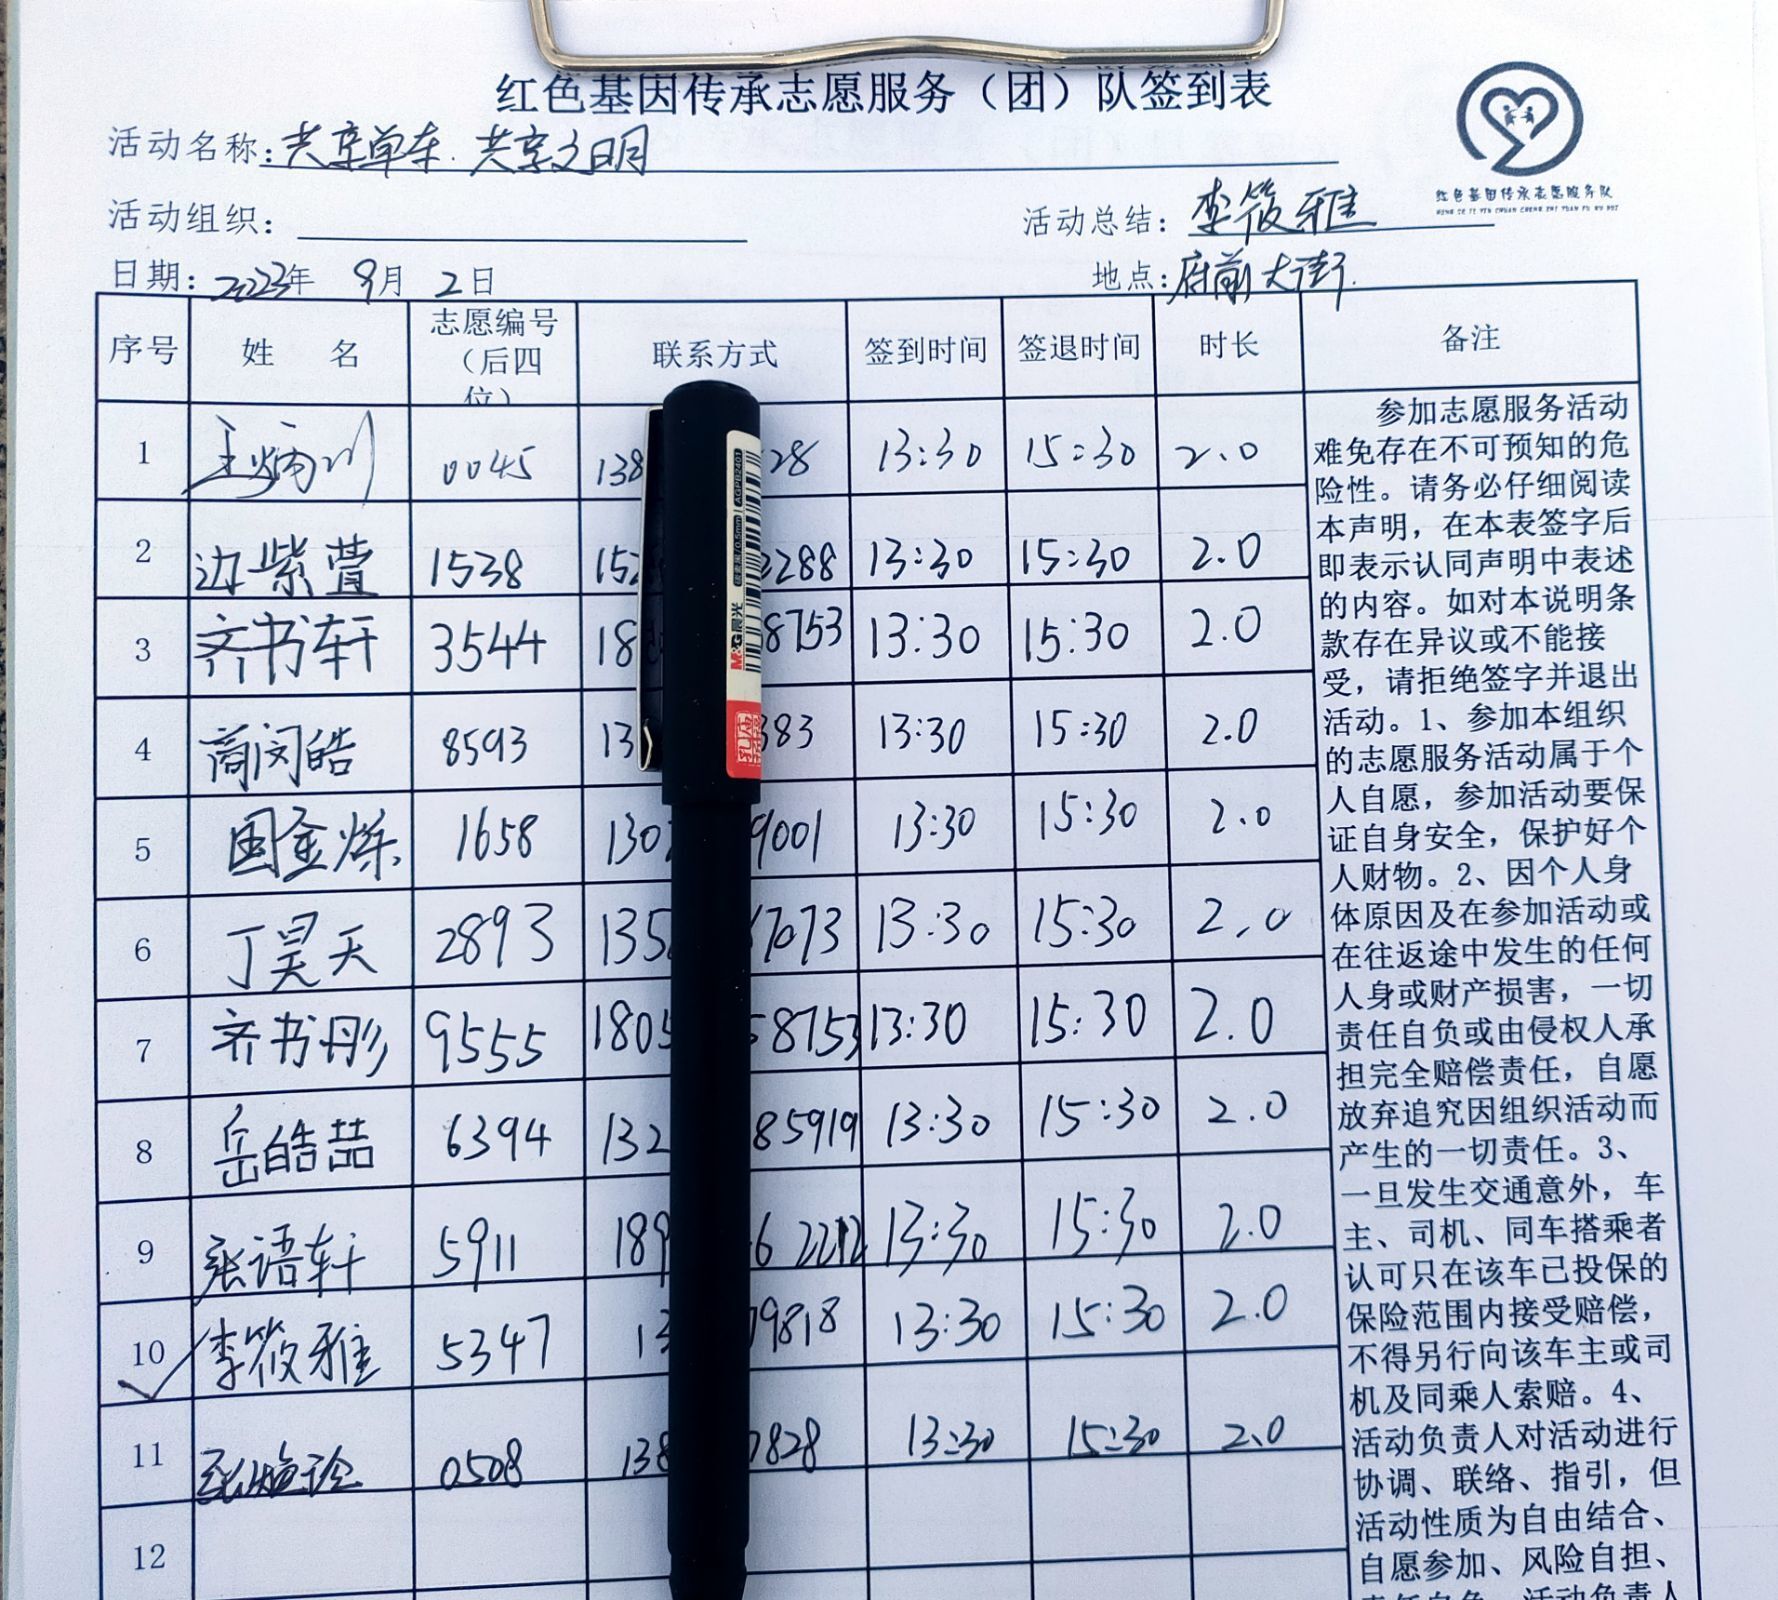 红色基因传承志愿服务（团）队签到表
红色基因传承志愿服务队
HONG SE JI YIN CHUAN CHENG ZHI YUAN FU WU DUI
活动名称：共享单车.共享文明
活动组织： 活动总结：李筱雅
日期：2023年 9月 2日 地点：府前大街.
序号 姓 名 志愿编号（后四位） 联系方式 签到时间 签退时间 时长 备注
1 王炳川 0045 138 28 13:30 15:30 2.0
2 边紫萱 1538 152 2288 13:30 15:30 2.0
3 齐书轩 3544 18 8753 13:30 15:30 2.0
4 商闵皓 8593 13 383 13:30 15:30 2.0
5 国金烁 1658 130 9001 13:30 15:30 2.0
6 丁昊天 2893 135 7073 13:30 15:30 2.0
7 齐书彤 9555 1805 58753 13:30 15:30 2.0
8 岳皓喆 6394 132 85919 13:30 15:30 2.0
9 张语轩 5911 189 6 2212 13:30 15:30 2.0
10 李筱雅 5347 13 79818 13:30 15:30 2.0
11 0508 138 7828 13:30 15:30 2.0
12
参加志愿服务活动
难免存在不可预知的危
险性。请务必仔细阅读
本声明，在本表签字后
即表示认同声明中表述
的内容。如对本说明条
款存在异议或不能接
受，请拒绝签字并退出
活动。1、参加本组织
的志愿服务活动属于个
人自愿，参加活动要保
证自身安全，保护好个
人财物。2、因个人身
体原因及在参加活动或
在往返途中发生的任何
人身或财产损害，一切
责任自负或由侵权人承
担完全赔偿责任，自愿
放弃追究因组织活动而
产生的一切责任。3、
一旦发生交通意外，车
主、司机、同车搭乘者
认可只在该车已投保的
保险范围内接受赔偿，
不得另行向该车主或司
机及同乘人索赔。4、
活动负责人对活动进行
协调、联络、指引，但
活动性质为自由结合、
自愿参加、风险自担、
责任自负，活动负责人
M&G晨光
AGPB2401
孔庙祈福